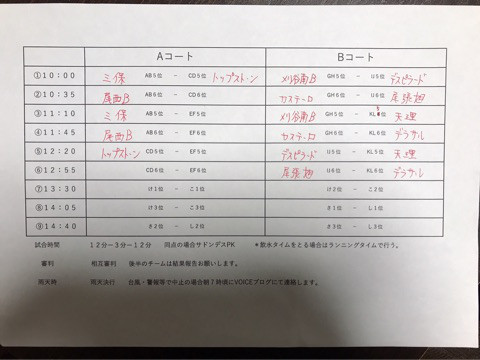 Aコート Bコート
①10:00 三保 AB5位 － CD5位 トップストーン 刈谷南B GH5位 － IJ5位 デスピラード
②10:35 尾西B AB6位 － CD6位 カステーロ GH6位 － IJ6位 尾張旭
③11:10 三保 AB5位 － EF5位 刈谷南B GH5位 － KL5位 天理
④11:45 尾西B AB6位 － EF6位 カステーロ GH6位 － KL6位 デラサル
⑤12:20 トップストーン CD5位 － EF5位 デスピラード IJ5位 － KL5位 天理
⑥12:55 CD6位 － EF6位 尾張旭 IJ6位 － KL6位 デラサル
⑦13:30 け1位 － こ1位 け2位 － こ2位
⑧14:05 け3位 － こ3位 き1位 － し1位
⑨14:40 さ2位 － し2位 さ3位 － し3位
試合時間 12分ー3分ー12分 同点の場合サドンデスPK ＊散水タイムをとる場合はランニングタイムで行う。
審判 相互審判 後半のチームは結果報告お願いします。
雨天時 雨天決行 台風・警報等で中止の場合朝7時頃にVOICEブログにて連絡します。